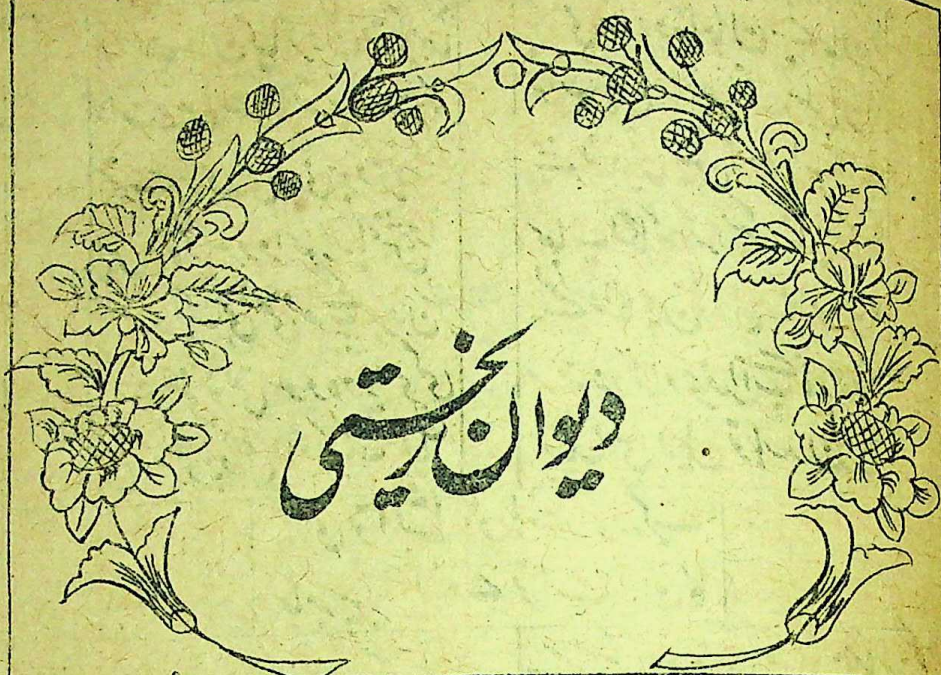 دیوان ریختی